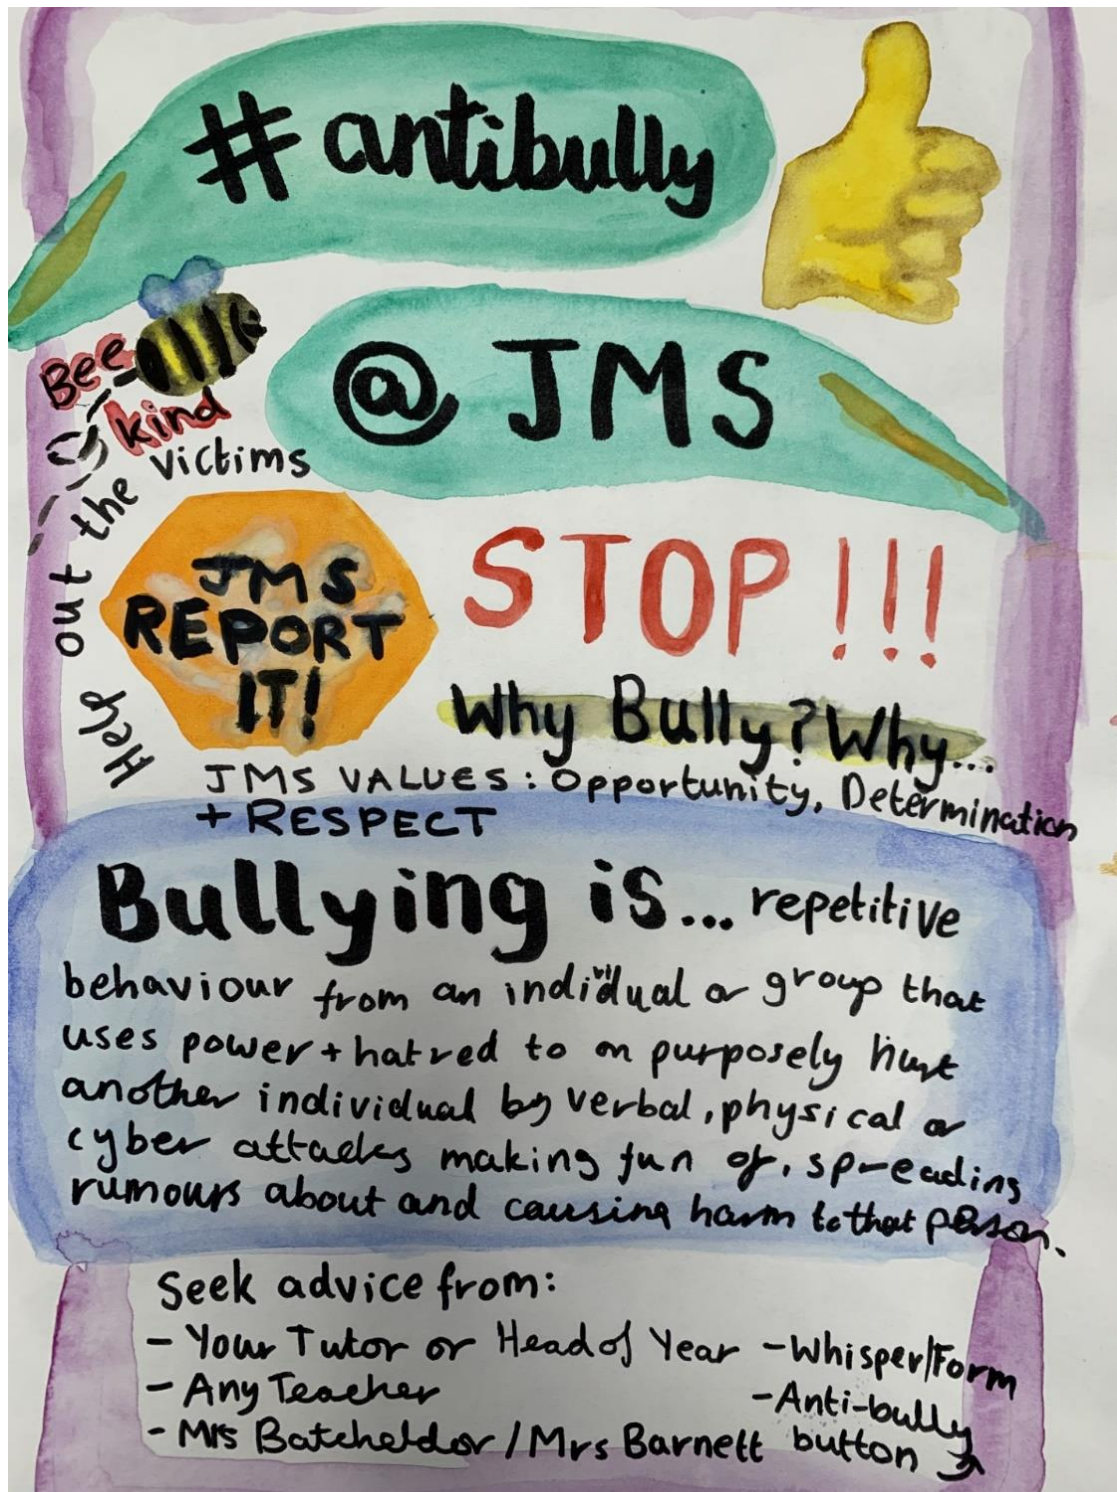 # antibully
@ JMS
Bee
kind
Help out the victims
JMS
REPORT
IT!
STOP!!!
Why Bully? Why...
JMS VALUES: Opportunity, Determination
+ RESPECT
Bullying is... repetitive
behaviour from an individual or group that
uses power + hatred to on purposely hurt
another individual by verbal, physical or
cyber attacks making fun of, spreading
rumours about and causing harm to that person.
Seek advice from:
- Your Tutor or Head of Year
- Any Teacher
- Mrs Batcheldor / Mrs Barnett
- Whisper/Form
- Anti-bully
button